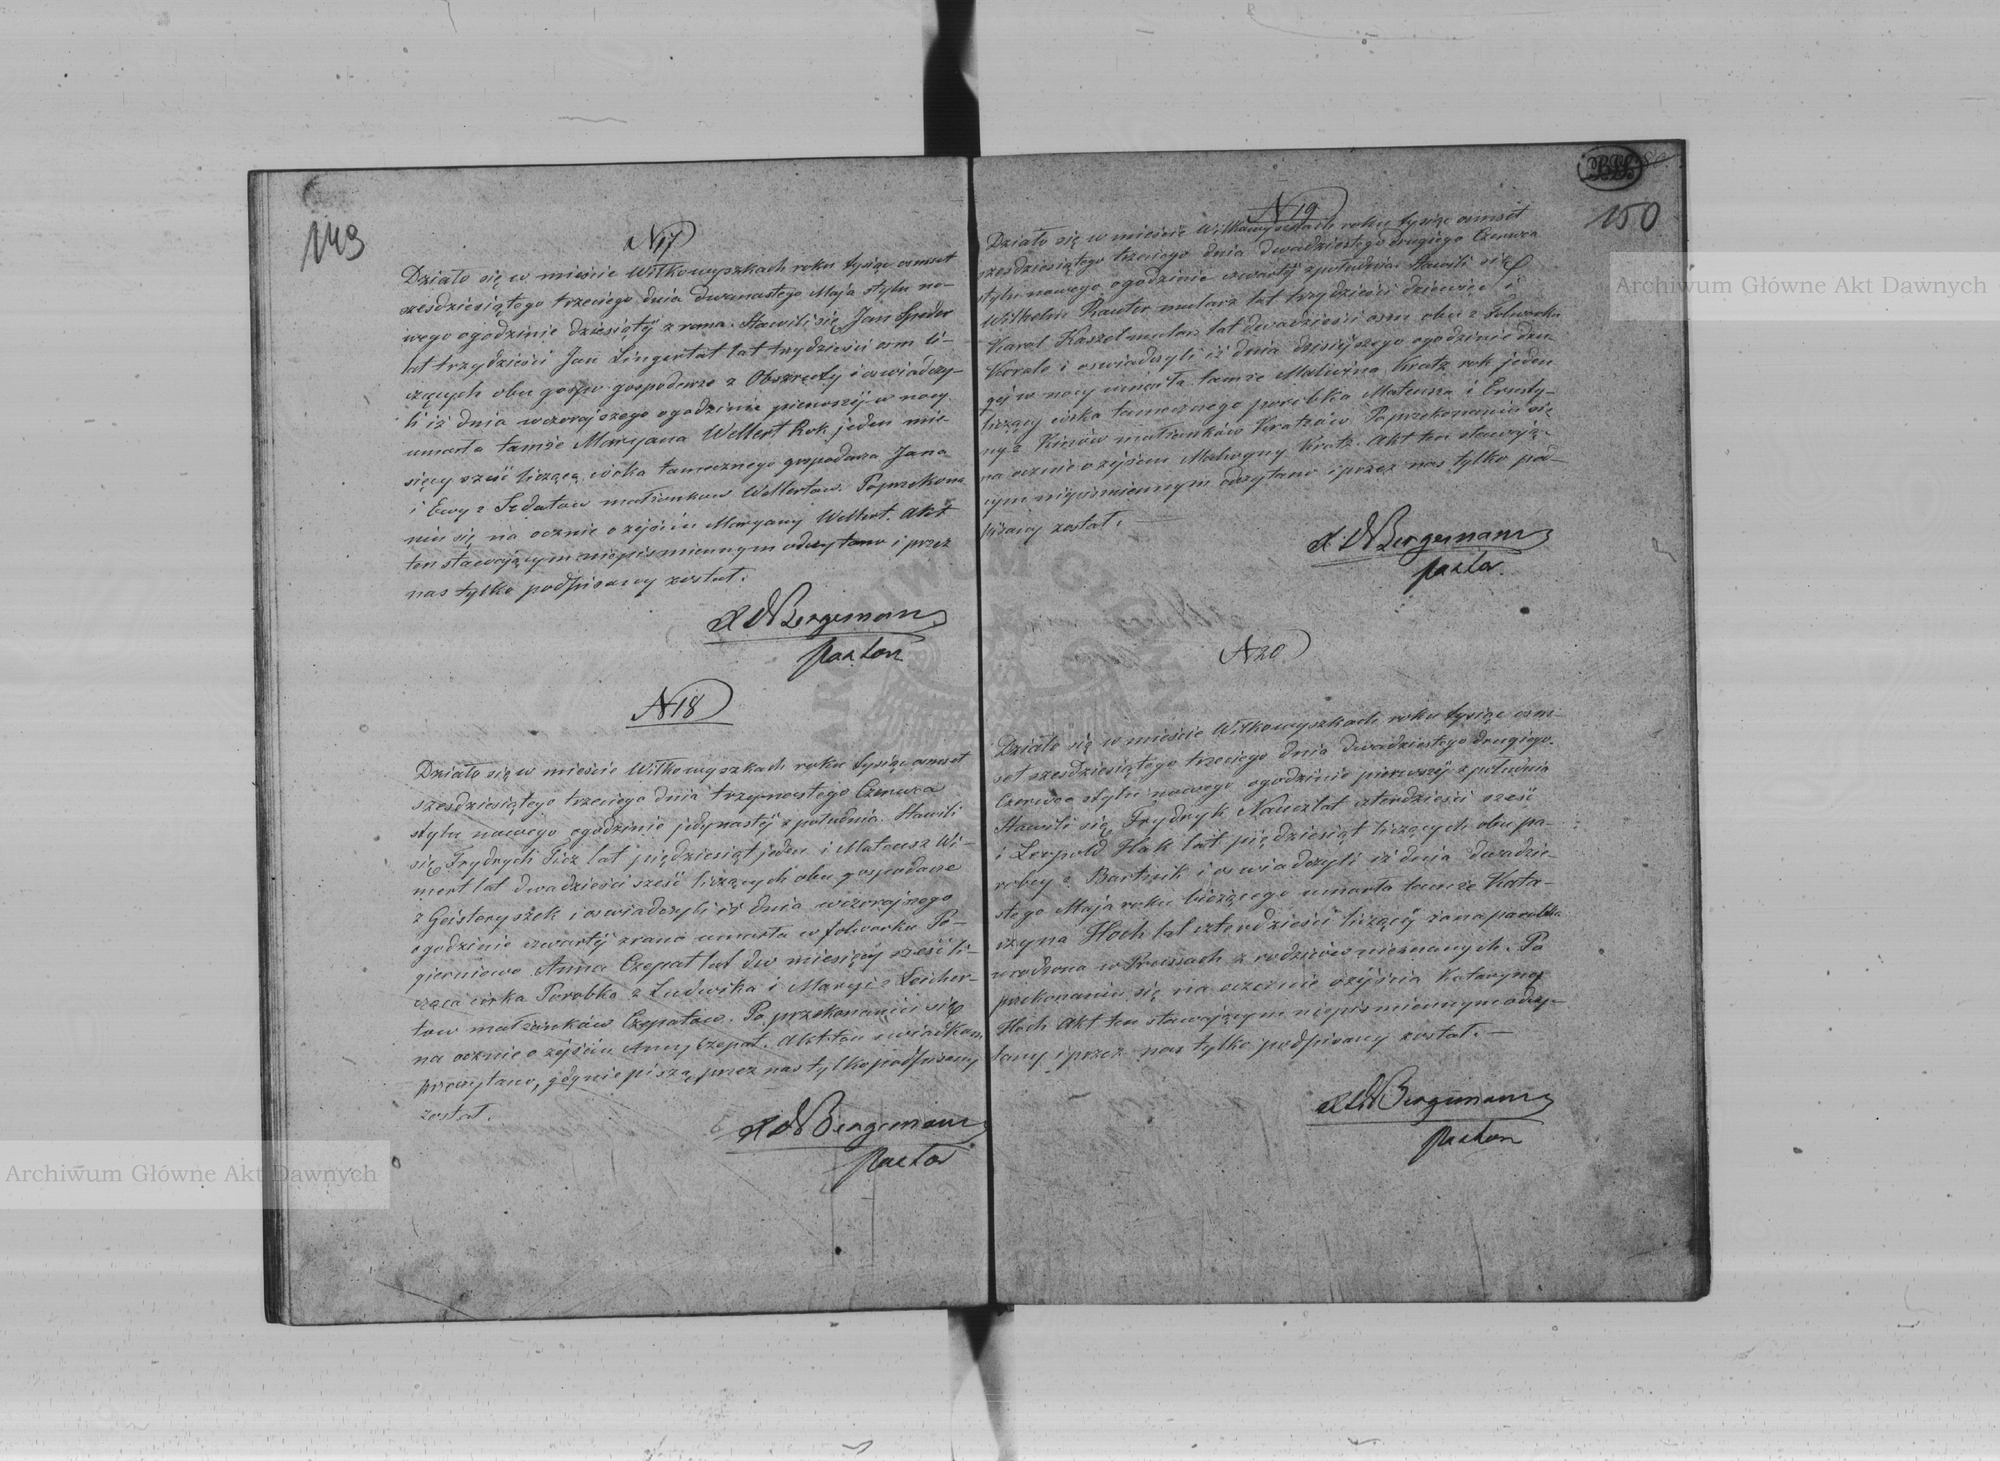 149
N 17
Działo się w mieście Wiłkowyszkach roku tysiąc osmset
szesdziesiątego trzeciego dnia dwunastego Maja stylu no-
wego ogodzinie dziesiątéj z rana. Stawili się, Jan Speder
lat trzydzieści Jan Lingertat lat trzydzieści osm li-
czących obu gospodarze z Obszruty i oswiadczy-
li iż dnia wczorajszego ogodzinie pierwszéj w nocy
umarła tamże Maryana Wellert Rok jeden mie-
sięcy sześć licząca córka tamecznego gospodarza Jana
i Ewy z Szdatow małżonkow Wellertow. Po przekona
niu się na ocznie o zéjściu Maryany Wellert. Akt
ten stawającym niepismiennym odczytano i przez
nas tylko podpisany został.
Bergemann
pastor
N 18
Działo się w mieście Wiłkowyszkach roku tysiąc osmset
szesdziesiątego trzeciego dnia trzynastego Czerwca
stylu nowego ogodzinie jedynastéj z południa. Stawili
się Frydrych Ficz lat pięćdziesiąt jeden i Mateusz Wi-
mert lat dwadzieści sześć liczących obu gospodarze
z Geisteryszek i oswiadczyli iż dnia wczorajszego
ogodzinie czwartéj zrana umarła w folwarku Po-
gierniewo Anna Czepat lat dw miesięcy sześć li-
cząca córka Parobka z Ludwika i Maryi z Leicher-
tow małżonków Czepatow. Po przekonaniu się
na ocznie o zéjściu Anny Czepat. Akt ten swiadkom
przeczytano, gdy nie piszą, przez nas tylko podpisany
został.
Bergemann
pastor
150
N 19
Działo się w mieście Wiłkowyszkach roku tysiąc osmset
szesdziesiątego trzeciego dnia dwudziestego drugiego Czerwca
stylu nowego ogodzinie czwartéj z południa. Stawili się
Wilhelm Rauter mularz lat trzydzieści dziewięć i
Karol Kaszel mularz lat dwadzieści osm obu z Folwarku
Korale i oswiadczyli iż dnia dzisiéjszego ogodzinie dru
giéj w nocy umarła tamże Malwina Kratz rok jeden
licząca córka tamecznego parobka Mateusza i Ernesty-
ny z małżonków Kratzów Po przekonaniu się
na ocznie o zéjściu Malwyny Kratz. Akt ten stawają-
cym niepismiennym odczytano i przez nas tylko pod-
pisany został.
Bergemann
pastor.
N 20
Działo się w mieście Wiłkowyszkach roku tysiąc osm-
set szesdziesiątego trzeciego dnia dwudziestego drugiego
Czerwca stylu nowego ogodzinie pierwszéj z południa
Stawili się, Frydryk Nauczlat czterdzieści sześć
i Leopold Hak lat pięćdziesiąt liczących obu pa-
robcy z Bartnik i oswiadczyli iż dnia dwudzie-
stego Maja roku bieżącego umarła tamże Kata-
rzyna Hoch lat czterdzieści licząca żona parobka
urodzona w Prussach z rodziców nieznanych. Po
przekonaniu się na ocznie o zéjściu Katarzyny
Hoch Akt ten stawającym niepismiennym odczy-
tany i przez nas tylko podpisany został.
Bergemann
pastor
Archiwum Główne Akt Dawnych
Archiwum Główne Akt Dawnych